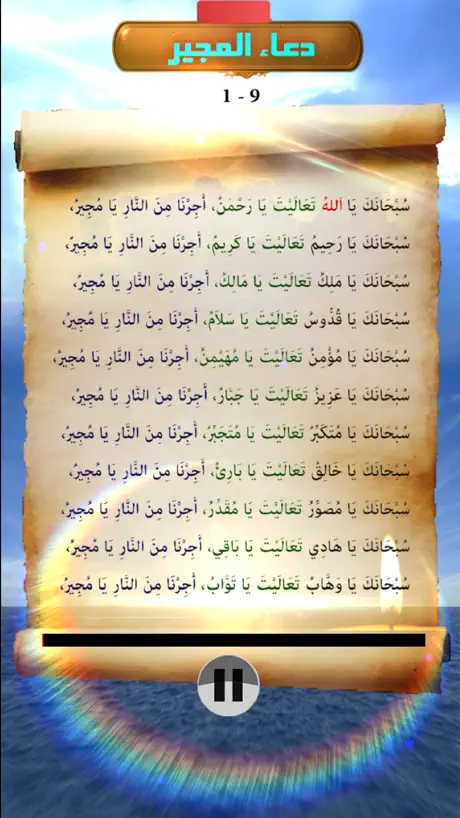 دعاء المجير
1 - 9
سُبْحَانَكَ يَا اَللهُ تَعَالَيْتَ يَا رَحْمٰنُ، أَجِرْنَا مِنَ النَّارِ يَا مُجِيرُ،
سُبْحَانَكَ يَا رَحِيمُ تَعَالَيْتَ يَا كَرِيمُ، أَجِرْنَا مِنَ النَّارِ يَا مُجِيرُ،
سُبْحَانَكَ يَا مَلِكُ تَعَالَيْتَ يَا مَالِكُ، أَجِرْنَا مِنَ النَّارِ يَا مُجِيرُ،
سُبْحَانَكَ يَا قُدُّوسُ تَعَالَيْتَ يَا سَلاَمُ، أَجِرْنَا مِنَ النَّارِ يَا مُجِيرُ،
سُبْحَانَكَ يَا مُؤْمِنُ تَعَالَيْتَ يَا مُهَيْمِنُ، أَجِرْنَا مِنَ النَّارِ يَا مُجِيرُ،
سُبْحَانَكَ يَا عَزِيزُ تَعَالَيْتَ يَا جَبَّارُ، أَجِرْنَا مِنَ النَّارِ يَا مُجِيرُ،
سُبْحَانَكَ يَا مُتَكَبِّرُ تَعَالَيْتَ يَا مُتَجَبِّرُ، أَجِرْنَا مِنَ النَّارِ يَا مُجِيرُ،
سُبْحَانَكَ يَا خَالِقُ تَعَالَيْتَ يَا بَارِئُ، أَجِرْنَا مِنَ النَّارِ يَا مُجِيرُ،
سُبْحَانَكَ يَا مُصَوِّرُ تَعَالَيْتَ يَا مُقَدِّرُ، أَجِرْنَا مِنَ النَّارِ يَا مُجِيرُ،
سُبْحَانَكَ يَا هَادِي تَعَالَيْتَ يَا بَاقِي، أَجِرْنَا مِنَ النَّارِ يَا مُجِيرُ،
سُبْحَانَكَ يَا وَهَّابُ تَعَالَيْتَ يَا تَوَّابُ، أَجِرْنَا مِنَ النَّارِ يَا مُجِيرُ،